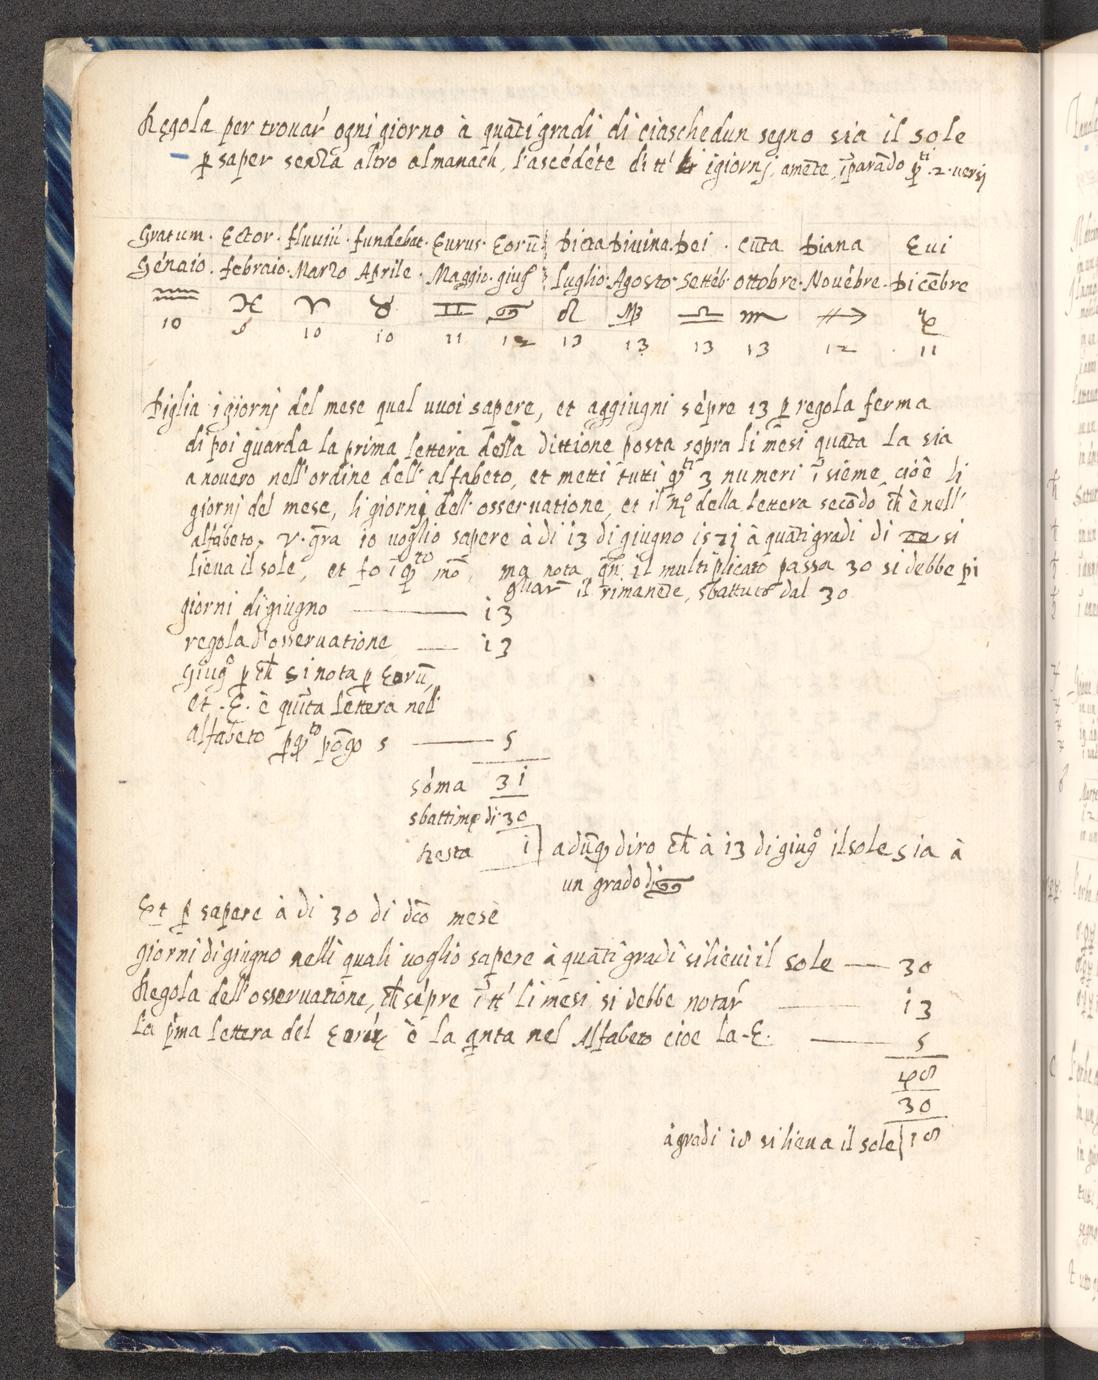 Regola per trouar' ogni giorno à quāti gradi di ciaschedun segno sia il sole
p saper senza altro almanach, l'ascédéte di tt' li igiornj, amēte, īparādo qsti .2. versj
Gratum · Ector · fluuiū · fundebat · Eurus · Eorū · Dicta Diuina Dei · cūta Diana Eui
Génaio · febraio · Marzo Aprile · Maggio · giug° luglio · Agosto · Settéb · ottobre · Nouébre · Dicēbre
♒ ♓ ♈ ♉ ♊ ♋ ♌ ♍ ♎ ♏ ♐ ♑
10 10 10 11 12 13 13 13 13 12 11
Piglia i giornj del mese qual uuoi sapere, et aggiugni sépre 13 p regola ferma
di poi guarda la prima lettera della dittione posta sopra li mesi quāta la sia
a nouero nell'ordine dell'alfabeto, et metti tutti qsti 3 numeri īsieme, cioè li
giornj del mese, li giornj dell'osseruatione, et il n° della lettera secōdo ch' è nell'
alfabeto, v. gra io uoglio sapere à di 13 di giugno 1571 à quāti gradi di ♋ si
lieua il sole, et fo ī qsto mō, ma nota qn: il multiplicato passa 30 si debbe pi
gliar' il rimanēte, sbattuto dal 30
giorni di giugno —— 13
regola d'osseruatione —— 13
Giug° p ch' si nota p Eorū,
et · E · è quīta lettera nell'
alfabeto p qsto pōgo 5 —— 5
sóma 31
sbattimē di 30
Resta 1 adūq diro ch' à 13 di giug° il sole sia à
un grado di ♋
Et p sapere à di 30 di dco mese
giorni di giugno nelli quali uoglio sapere à quāti gradi si lieui il sole —— 30
Regola dell'osseruatione, ch' sépre ī tt' li mesi si debbe notar' —— 13
La pma lettera del Eorū è la qnta nel Alfabeto cioe la · E · —— 5
48
30
à gradi 18 si lieua il sole 18